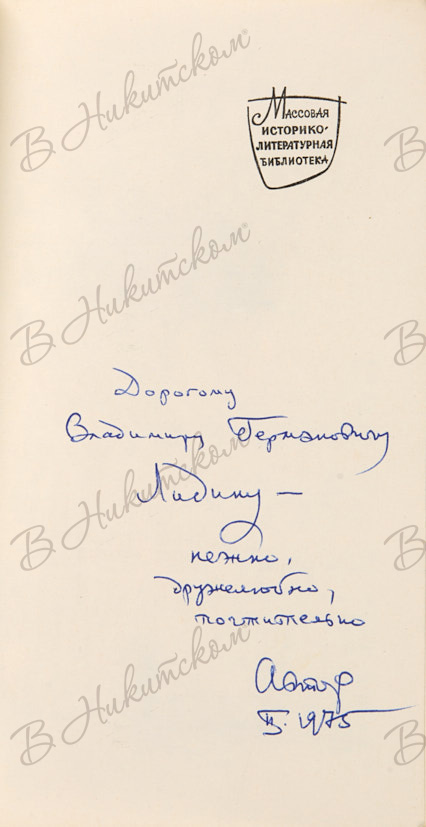 В Никитском
Массовая
историко-
литературная
библиотека
В
В Никитском
В
Дорогому
Владимиру Германовичу
Лидину —
В Никитском
В
нежно,
дружелюбно,
почтительно
Автор
II. 1975
В Никитском
В